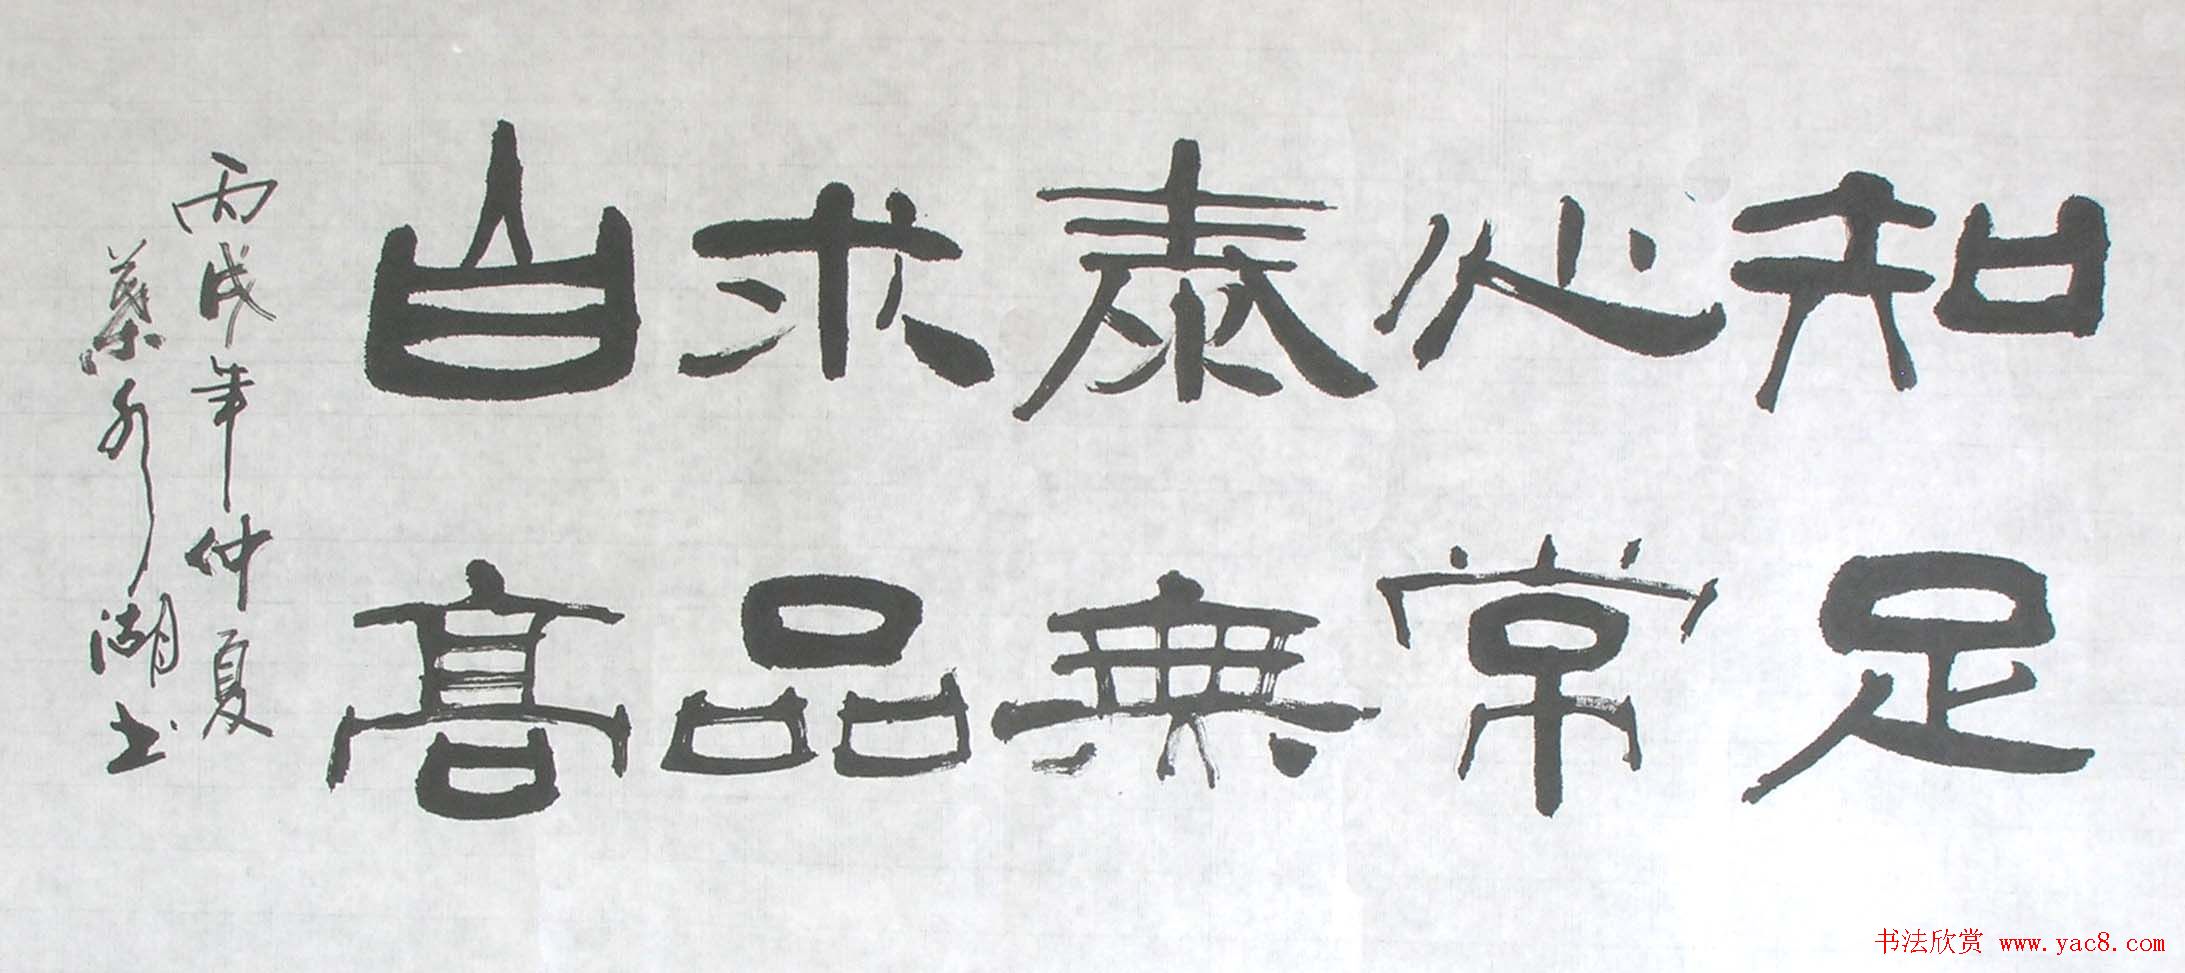 知足
心常
泰無
求品
自高
丙戌年仲夏
蔡湖书
书法欣赏 www.yac8.com